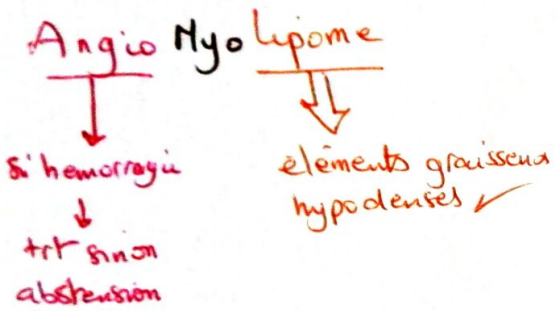 Angio Myo Lipome
si hemorragie
trt sinon
abstension
éléments graisseux
hypodenses ✓